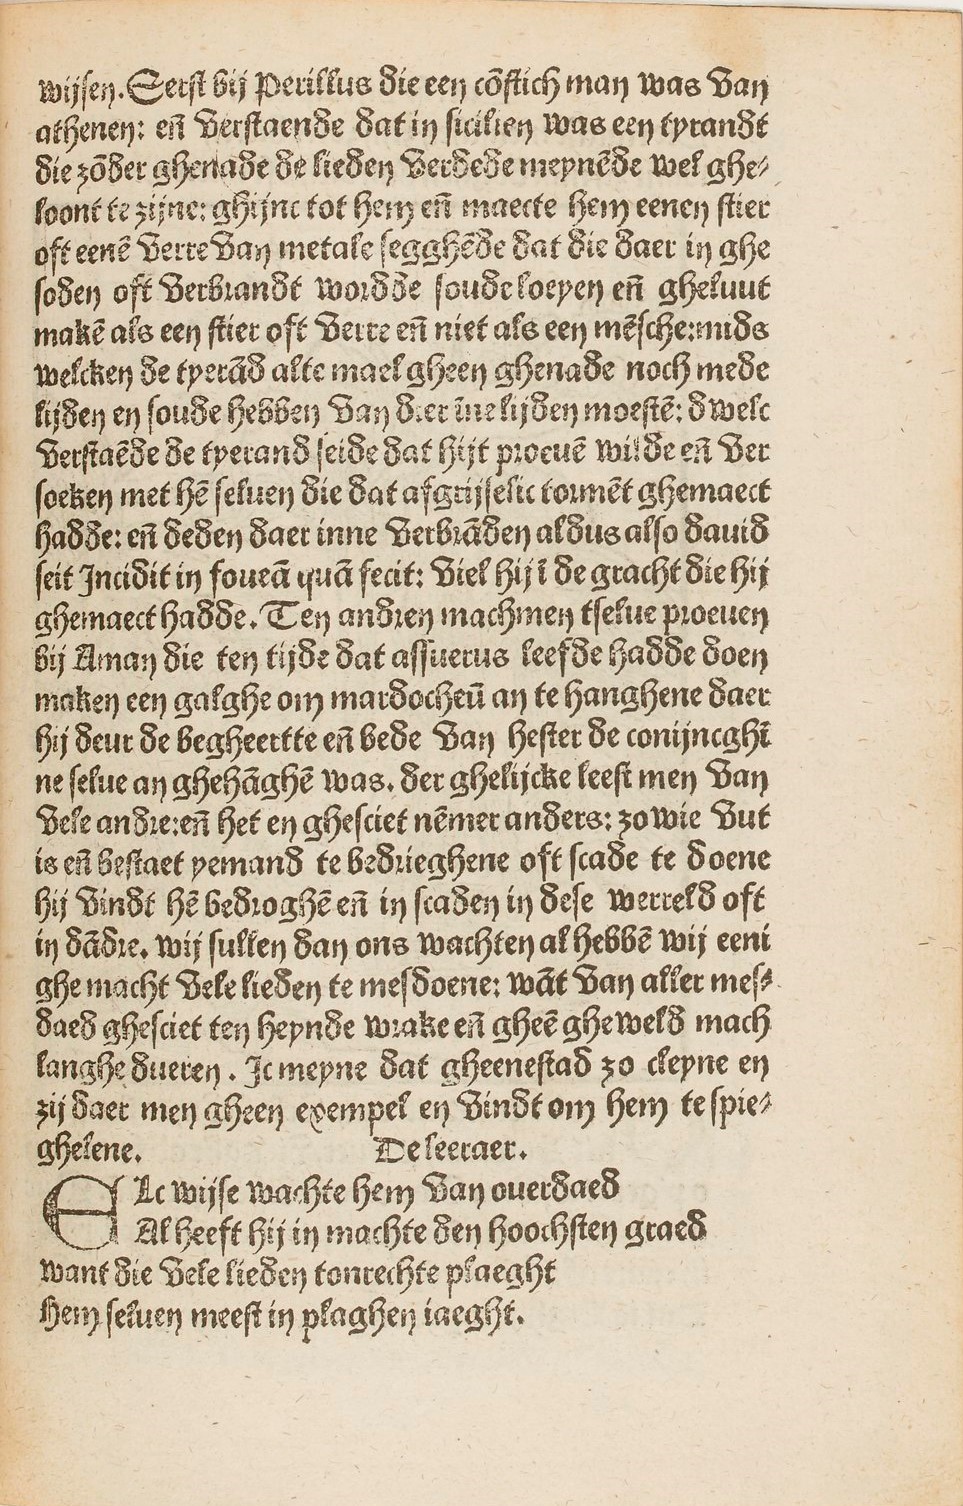 wijsen. Eerst bij Perillus die een cōstich man was van
athenen: eñ verstaende dat in sicilien was een tyrandt
die zōder ghenade de lieden verdede meynēde wel ghe⸗
loont te zijne: ghijnc tot hem eñ maecte hem eenen stier
oft eenē verre van metale segghēde dat die daer in ghe
soden oft verbrandt wordde soude loeyen eñ gheluut
makē als een stier oft verre eñ niet als een mēsche: mids
welcken de tyerād alte mael gheen ghenade noch mede
lijden en soude hebben van dier īne lijden moestē: dwelc
verstaēde de tyerand seide dat hijt proeuē wilde eñ ver
soeken met hē seluen die dat afgrijselic tormēt ghemaect
hadde: eñ deden daer inne verbrāden aldus also dauid
seit Incidit in foueā quā fecit: viel hij ī de gracht die hij
ghemaect hadde. Ten andren machmen tselue proeuen
bij Aman die ten tijde dat assuerus leefde hadde doen
maken een galghe om mardocheū an te hanghene daer
hij deur de begheertte eñ bede van hester de conijncghī
ne selue an ghehāghē was. der ghelijcke leest men van
vele andre: eñ het en ghesciet nēmer anders: zo wie vut
is eñ bestaet yemand te bedrieghene oft scade te doene
hij vindt hē bedroghē eñ in scaden in dese werreld oft
in dādre. wij sullen dan ons wachten al hebbē wij eeni
ghe macht vele lieden te mesdoene: wāt van aller mes⸗
daed ghesciet ten heynde wrake eñ gheē gheweld mach
langhe dueren. Ic meyne dat gheenestad zo cleyne en
zij daer men gheen exempel en vindt om hem te spie⸗
ghelene. De leeraer.
ELc wijse wachte hem van ouerdaed
Al heeft hij in machte den hoochsten graed
want die vele lieden tonrechte plaeght
Hem seluen meest in plaghen iaeght.